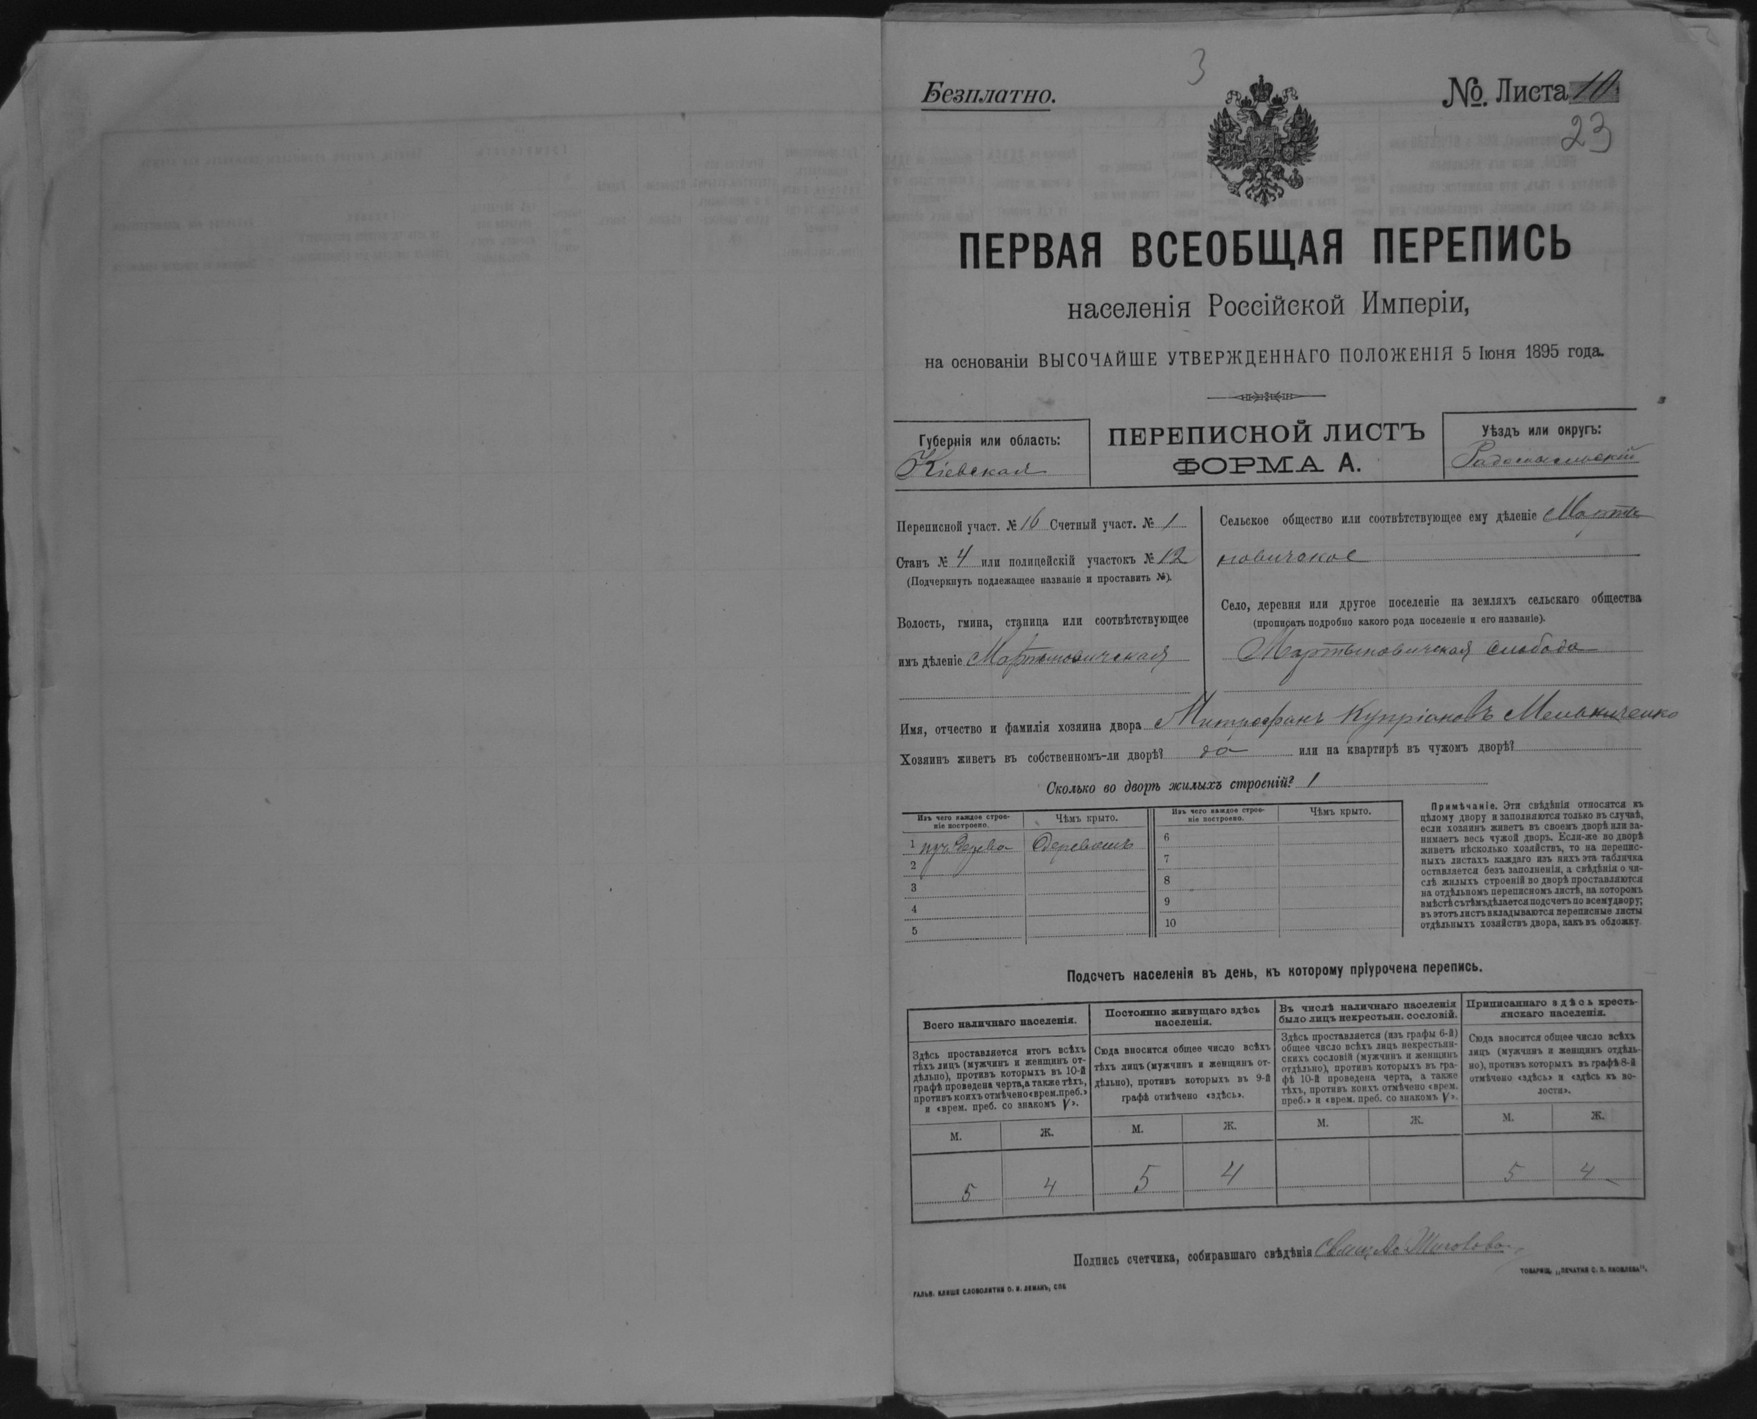 3
Безплатно.
№. Листа 10
23
ПЕРВАЯ ВСЕОБЩАЯ ПЕРЕПИСЬ
населенія Россійской Имперіи,
на основаніи ВЫСОЧАЙШЕ УТВЕРЖДЕННАГО ПОЛОЖЕНІЯ 5 Іюня 1895 года.
Губернія или область:
Кіевская
ПЕРЕПИСНОЙ ЛИСТЪ
ФОРМА А.
Уѣздъ или округъ:
Радомысльскій
Переписной участ. № 16 Счетный участ. № 1
Станъ № 4 или полицейскій участокъ № 12
(Подчеркнуть подлежащее названіе и проставить №).
Волость, гмина, станица или соотвѣтствующее
имъ дѣленіе Мартыновичская
Сельское общество или соотвѣтствующее ему дѣленіе Марты
новичское
Село, деревня или другое поселеніе на земляхъ сельскаго общества
(прописать подробно какого рода поселеніе и его названіе).
Мартыновичская слобода
Имя, отчество и фамилія хозяина двора Митрофанъ Купріановъ Мельниченко
Хозяинъ живетъ въ собственномъ-ли дворѣ? да или на квартирѣ въ чужомъ дворѣ?
Сколько во дворѣ жилыхъ строеній? 1
Изъ чего каждое строе-
ніе построено.
Чѣмъ крыто.
Изъ чего каждое строе-
ніе построено.
Чѣмъ крыто.
1 Деревомъ
2
3
4
5
6
7
8
9
10
Примѣчаніе. Эти свѣдѣнія относятся къ
цѣлому двору и заполняются только въ случаѣ,
если хозяинъ живетъ въ своемъ дворѣ или за-
нимаетъ весь чужой дворъ. Если-же во дворѣ
живетъ нѣсколько хозяйствъ, то на перепис-
ныхъ листахъ каждаго изъ нихъ эта табличка
оставляется безъ заполненія, а свѣдѣнія о чи-
слѣ жилыхъ строеній во дворѣ проставляются
на отдѣльномъ переписномъ листѣ, на которомъ
вмѣстѣ съ тѣмъ дѣлается подсчетъ по всему двору;
въ этотъ листъ вкладываются переписные листы
отдѣльныхъ хозяйствъ двора, какъ въ обложку.
Подсчетъ населенія въ день, къ которому пріурочена перепись.
Всего наличнаго населенія.
Здѣсь проставляется итогъ всѣхъ
тѣхъ лицъ (мужчинъ и женщинъ от-
дѣльно), противъ которыхъ въ 10-й
графѣ проведена черта, а также тѣхъ,
противъ коихъ отмѣчено «врем. преб.»
и «врем. преб. со знакомъ V».
Постоянно живущаго здѣсь
населенія.
Сюда вносится общее число всѣхъ
тѣхъ лицъ (мужчинъ и женщинъ от-
дѣльно), противъ которыхъ въ 9-й
графѣ отмѣчено «здѣсь».
Въ числѣ наличнаго населенія
было лицъ некрестьян. сословій.
Здѣсь проставляется (изъ графы 6-й)
общее число всѣхъ лицъ некрестьян-
скихъ сословій (мужчинъ и женщинъ
отдѣльно), противъ которыхъ въ гра-
фѣ 10-й проведена черта, а также
тѣхъ, противъ коихъ отмѣчено «врем.
преб.» и «врем. преб. со знакомъ V».
Приписаннаго здѣсь кресть-
янскаго населенія.
Сюда вносится общее число всѣхъ
лицъ (мужчинъ и женщинъ отдѣль-
но), противъ которыхъ въ графѣ 8-й
отмѣчено «здѣсь» и «здѣсь къ во-
лости».
М. Ж. М. Ж. М. Ж. М. Ж.
5 4 5 4 5 4
Подпись счетчика, собиравшаго свѣдѣнія
ГАЛЬВ. КЛИШЕ СЛОВОЛИТНИ О. И. ЛЕМАНЪ, СПБ
ТОВАРИЩ. „ПЕЧАТНЯ С. П. ЯКОВЛЕВА".